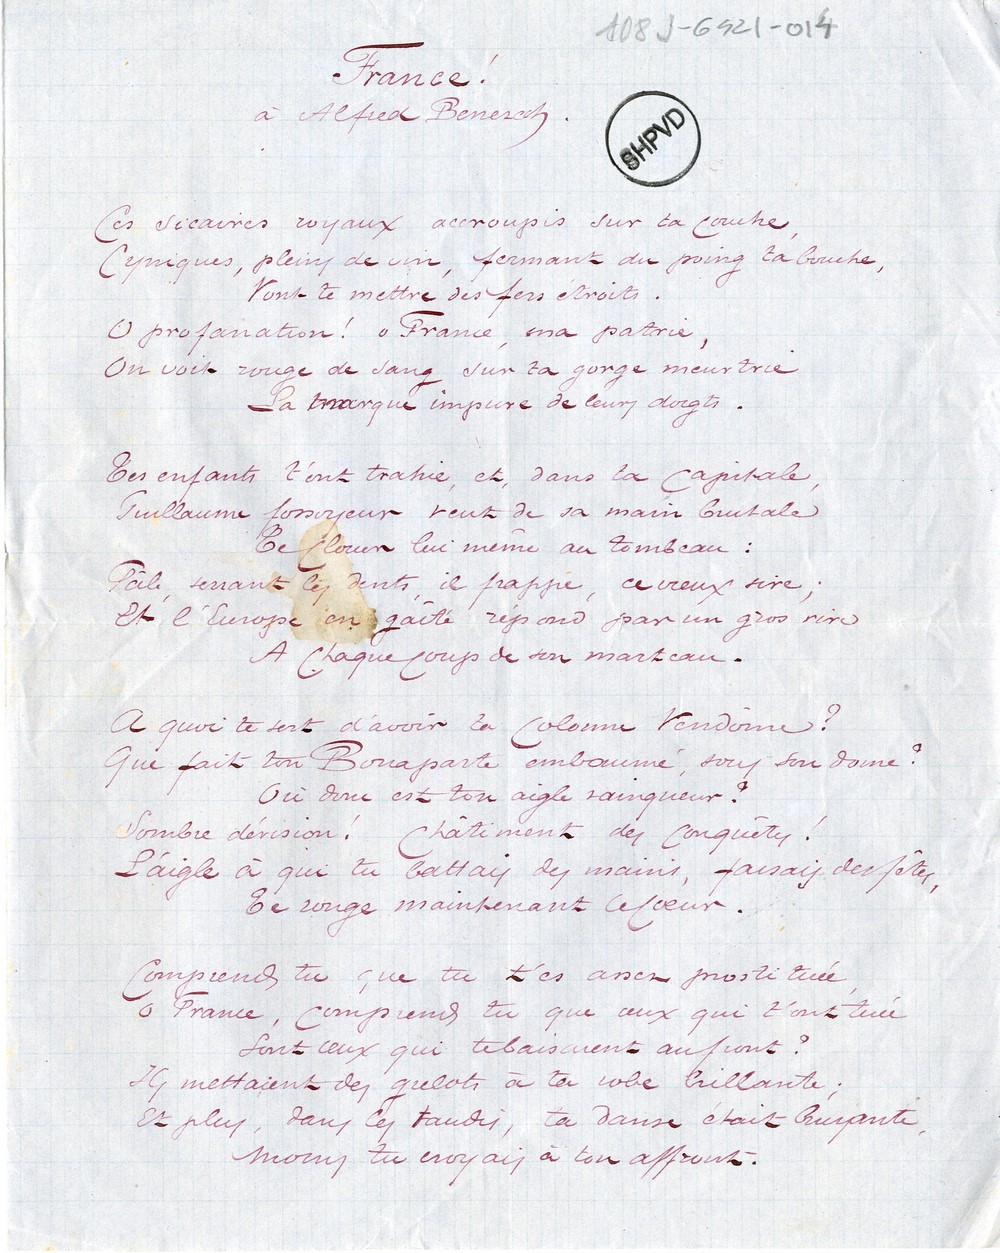 108 J-6421-014
France!
à Alfred Benezech.
SHPVD
Ces sicaires royaux accroupis sur ta couche,
Cyniques, pleins de vin, fermant du poing ta bouche,
Vont te mettre des fers étroits.
O profanation! o France, ma patrie,
On voit rouge de sang sur ta gorge meurtrie
La marque impure de leurs doigts.
Tes enfants t'ont trahie, et, dans ta Capitale,
Guillaume fossoyeur veut de sa main brutale
Te clouer lui même au tombeau :
Pâle, serrant les dents, il frappe, ce vieux sire;
Et l'Europe en gaîté répond par un gros rire
A chaque coup de son marteau.
A quoi te sert d'avoir ta Colonne Vendôme?
Que fait ton Bonaparte embaumé, sous son dome?
Où donc est ton aigle vainqueur?
Sombre dérision! Châtiment des conquêtes!
L'aigle à qui tu battais des mains, faisais des fêtes,
Te ronge maintenant le Cœur.
Comprends tu que tu t'es assez prostituée,
O France, comprends tu que ceux qui t'ont tuée
Sont ceux qui te baisaient au front?
Ils mettaient des grelots à ta robe brillante;
Et plus, dans les taudis, ta danse était bruyante,
Moins tu croyais à ton affront.